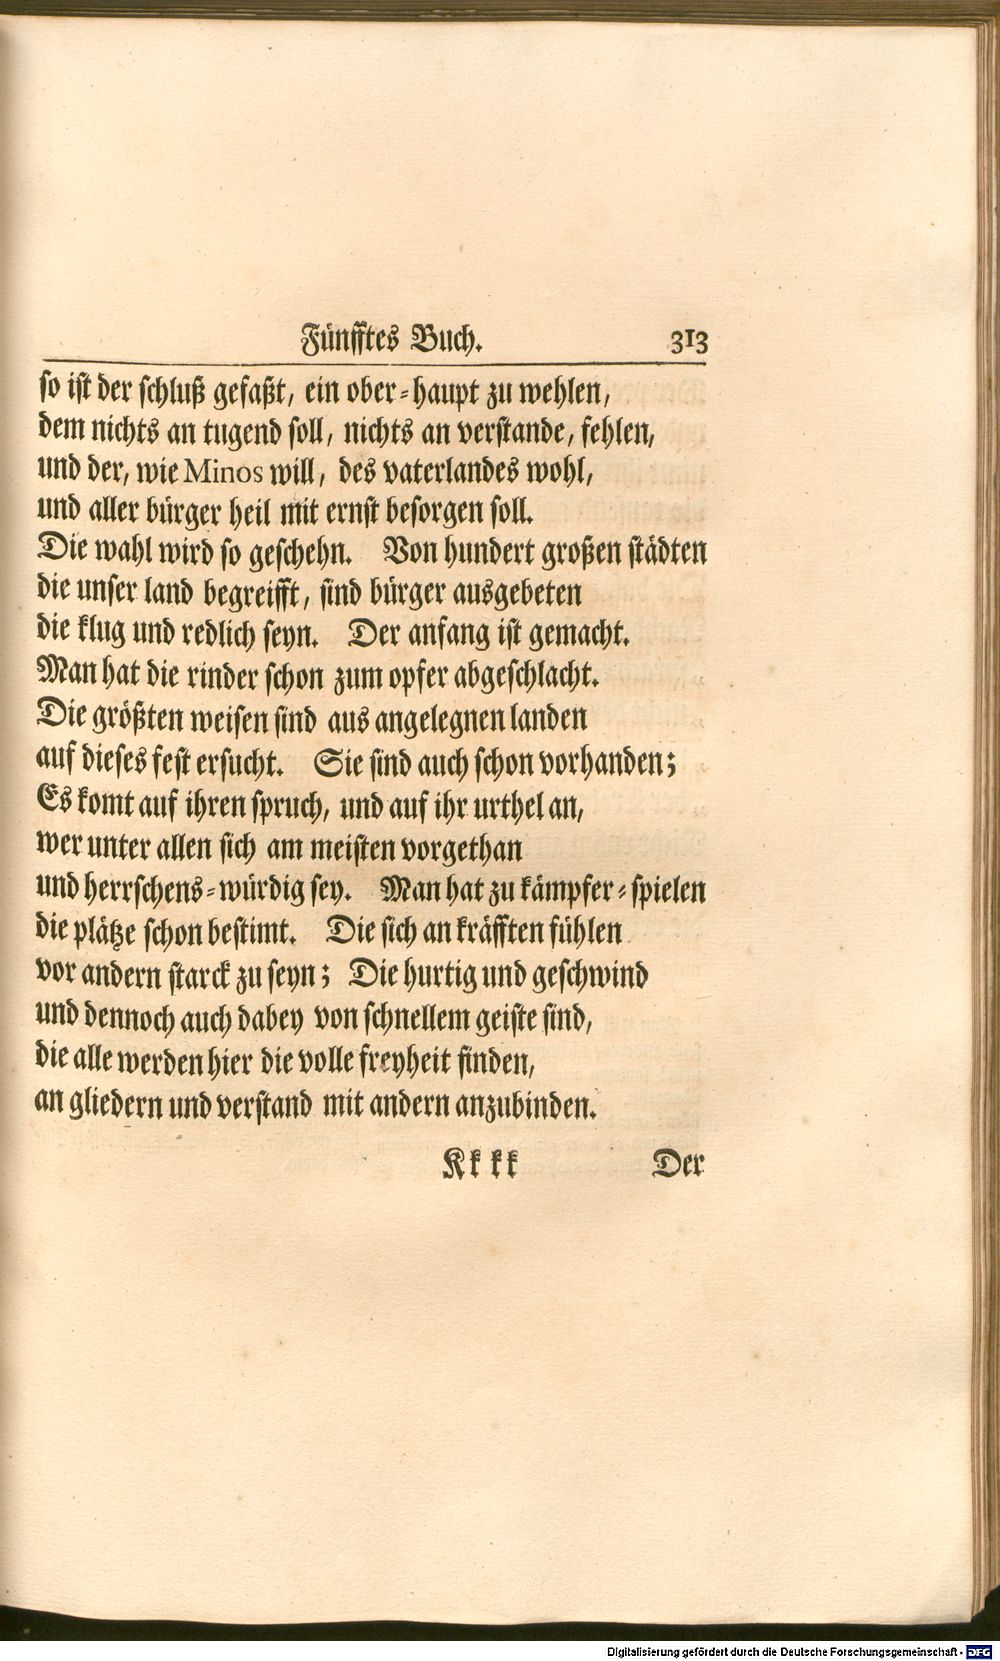 Fünfftes Buch. 313
so ist der schluß gefaßt, ein ober-haupt zu wehlen,
dem nichts an tugend soll, nichts an verstande, fehlen,
und der, wie Minos will, des vaterlandes wohl,
und aller bürger heil mit ernst besorgen soll.
Die wahl wird so geschehn. Von hundert großen städten
die unser land begreifft, sind bürger ausgebeten
die klug und redlich seyn. Der anfang ist gemacht.
Man hat die rinder schon zum opfer abgeschlacht.
Die größten weisen sind aus angelegnen landen
auf dieses fest ersucht. Sie sind auch schon vorhanden;
Es komt auf ihren spruch, und auf ihr urthel an,
wer unter allen sich am meisten vorgethan
und herrschens-würdig sey. Man hat zu kämpfer-spielen
die plätze schon bestimt. Die sich an kräfften fühlen
vor andern starck zu seyn; Die hurtig und geschwind
und dennoch auch dabey von schnellem geiste sind,
die alle werden hier die volle freyheit finden,
an gliedern und verstand mit andern anzubinden.
Kk kk Der
Digitalisierung gefördert durch die Deutsche Forschungsgemeinschaft - DFG